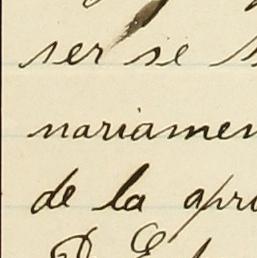 ser se
nariamen
de la apr